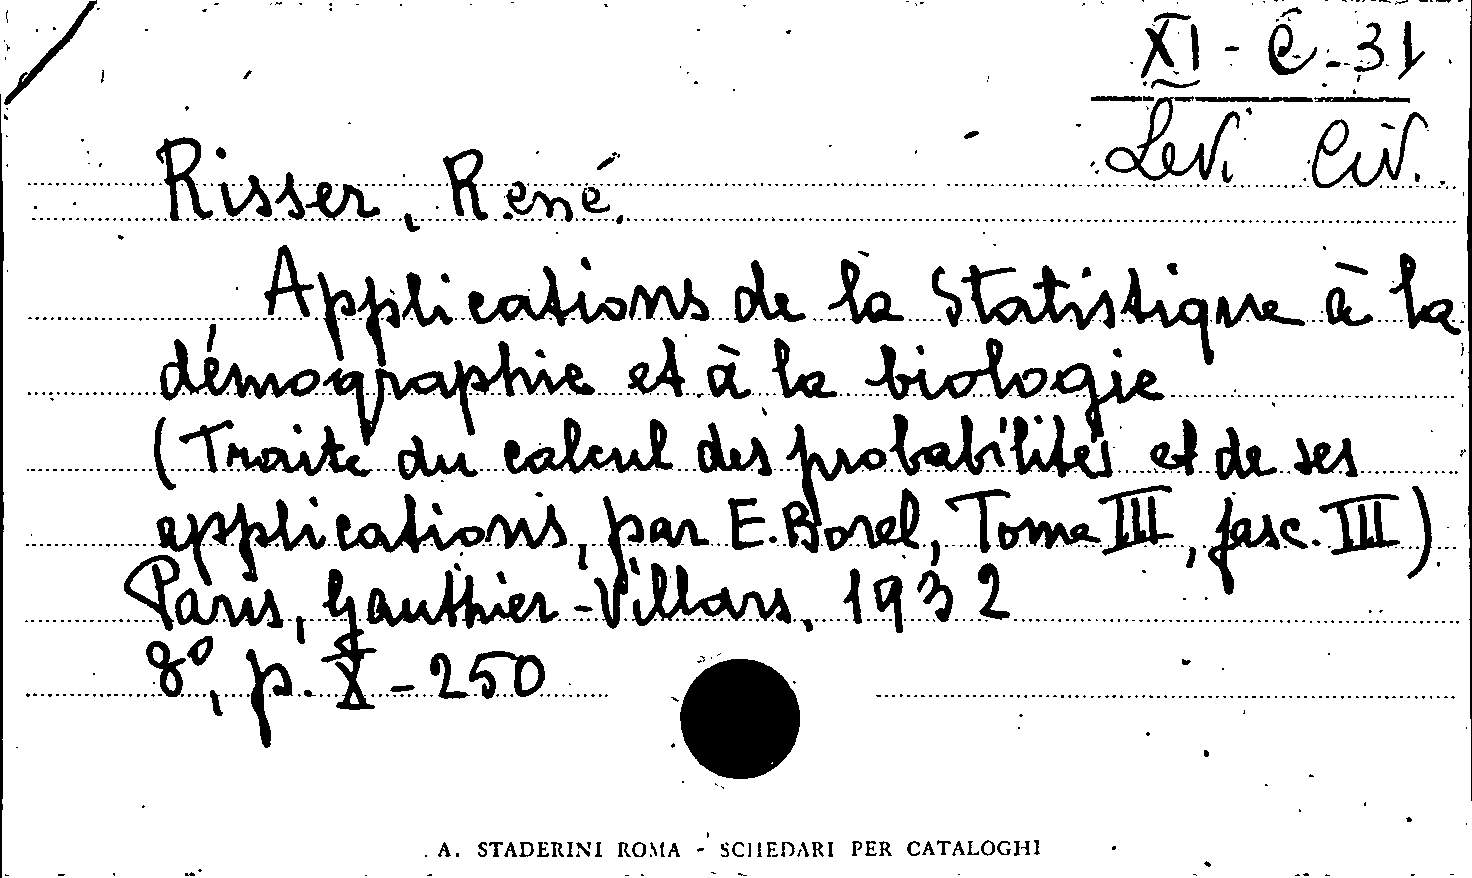 XI - C - 31
Levi Civ.
Risser, René.
Applications de la Statistique à la
démographie et à la biologie
(Traité du calcul des probabilités et de ses
applications, par E. Borel, Tome III, fasc. III)
Paris, Gauthier-Villars, 1932
8º, p. X - 250
A. STADERINI ROMA - SCHEDARI PER CATALOGHI